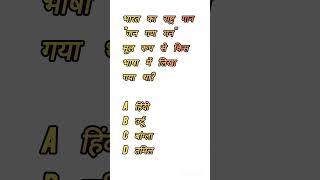 भारत का राष्ट्र गान
"जन गण मन"
मूल रूप से किस
भाषा में लिखा
गया था?
A हिंदी
B उर्दू
C बांग्ला
D तमिल